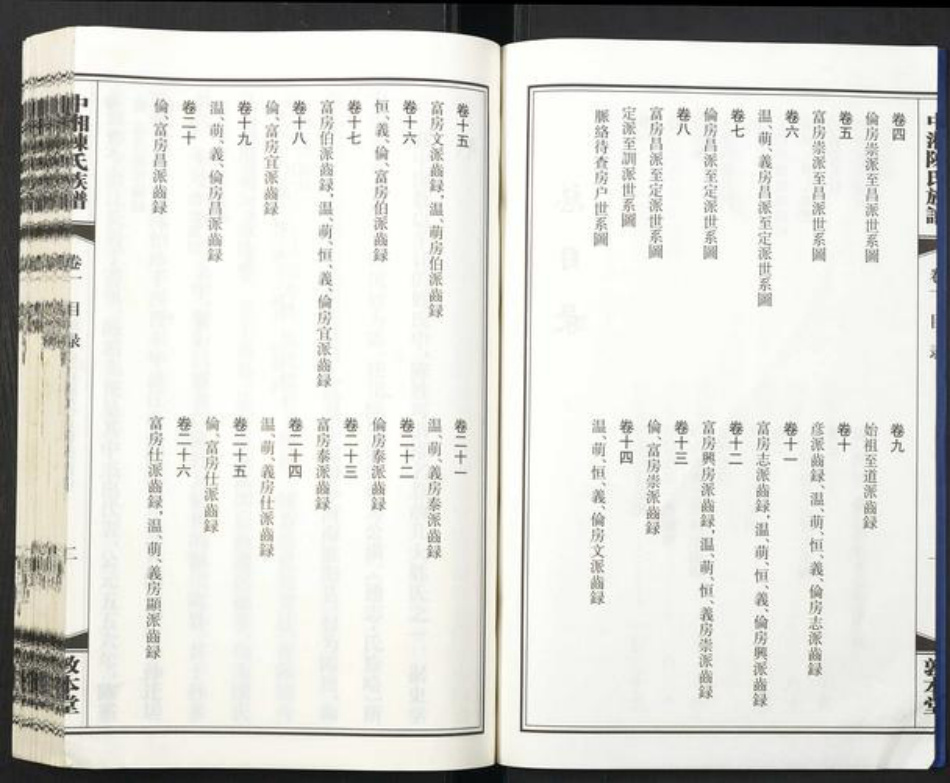 卷四
倫房崇派至昌派世系圖
卷五
富房崇派至昌派世系圖
卷六
溫、萌、義房昌派至定派世系圖
卷七
倫房昌派至定派世系圖
卷八
富房昌派至定派世系圖
定派至訓派世系圖
脈絡待查房户世系圖
卷九
始祖至道派齒録
卷十
彦派齒録、溫、萌、恒、義、倫房志派齒録
卷十一
富房志派齒録，溫、萌、恒、義、倫房興派齒録
卷十二
富房興房派齒録，溫、萌、恒、義房崇派齒録
卷十三
倫、富房崇派齒録
卷十四
溫、萌、恒、義、倫房文派齒録
卷十五
富房文派齒録，溫、萌房伯派齒録
卷十六
恒、義、倫、富房伯派齒録
卷十七
富房伯派齒録，溫、萌、恒、義、倫房宜派齒録
卷十八
倫、富房宜派齒録
卷十九
溫、萌、義、倫房昌派齒録
卷二十
倫、富房昌派齒録
卷二十一
溫、萌、義房泰派齒録
卷二十二
倫房泰派齒録
卷二十三
富房泰派齒録
卷二十四
溫、萌、義房仕派齒録
卷二十五
倫、富房仕派齒録
卷二十六
富房仕派齒録，溫、萌、義房顯派齒録
中湘陳氏族譜
卷一
目録
二
敦本堂